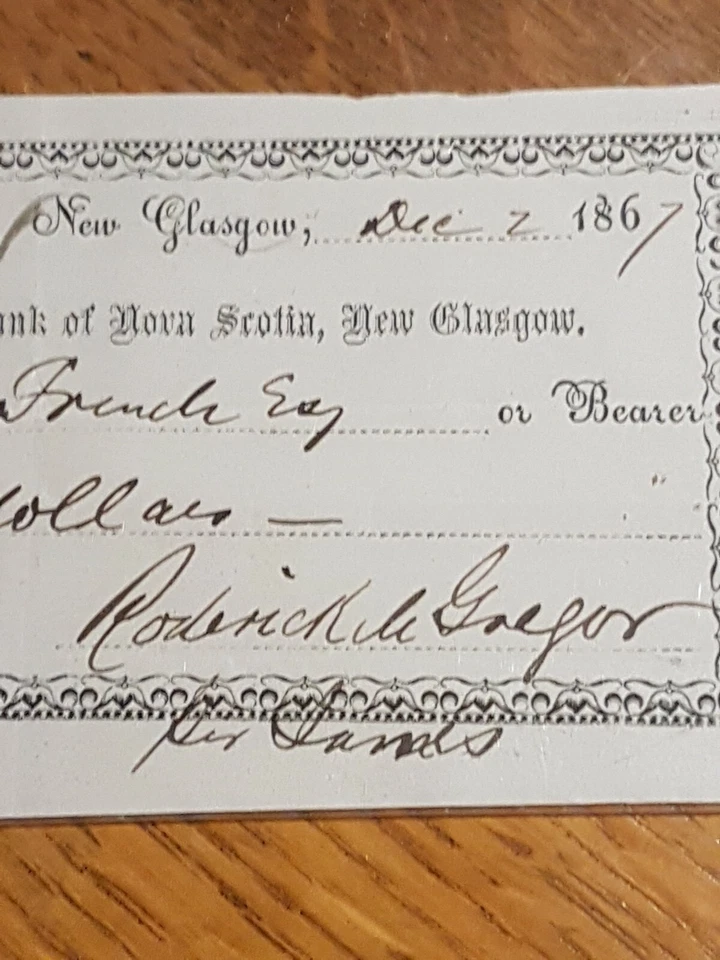 New Glasgow, Dec 2 1867
ank of Nova Scotia, New Glasgow.
French Esq or Bearer
dollars —
Roderick McGregor
per